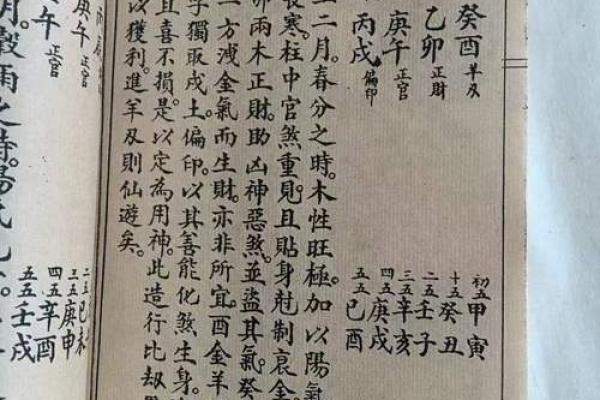 癸酉 羊刃
乙卯 正財
庚午 正官
丙戌 偏印
初五甲寅
十五癸丑
二五壬子
三五辛亥
四五庚戌
五五己酉
二月。春分之時。木性旺極。加以陽氣
寒。柱中官煞重見。且貼身尅制衰金。
卯兩木正財。助凶神惡煞。並盜其氣。癸
一方洩金氣而生財。亦非所宜。酉金羊
字獨取戌土。偏印。以其善能化煞生身。
且喜不損。是以定為用神。此造行比劫
以獲利。進羊刃則仙遊矣。
庚午 正官
午 正官
二五己未
三五庚申
四五辛酉
五五壬戌
月。穀雨之時。陽氣